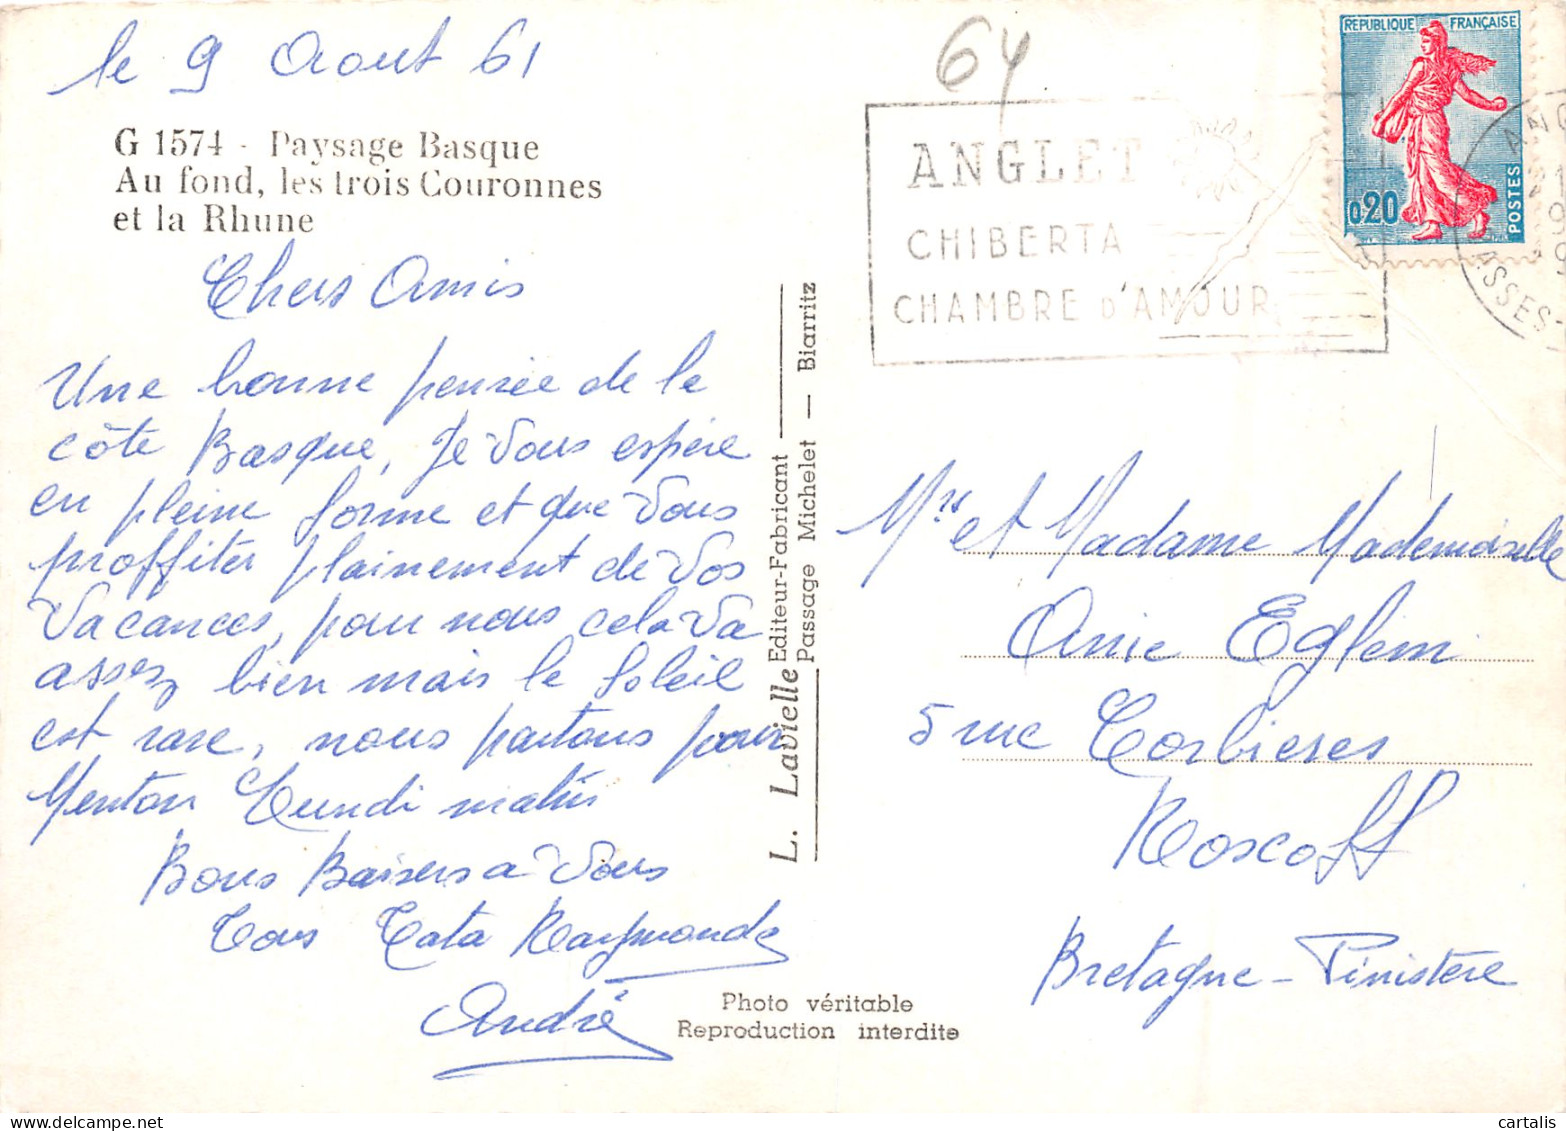 le 9 Aout 61
G 1574 - Paysage Basque
Au fond, les trois Couronnes
et la Rhune
Chers Amis
Une bonne pensée de la
côte Basque, Je vous espère
en pleine forme et que vous
proffiter plainement de vos
vacances, pour nous cela va
assez bien mais le soleil
est rare, nous partons pour
Menton Lundi matin
Bons Baisers a vous
Tous Tata Raymonde
André
Photo véritable
Reproduction interdite
L. Lavielle Editeur-Fabricant
Passage Michelet — Biarritz
64
ANGLET
CHIBERTA
CHAMBRE D'AMOUR
REPUBLIQUE FRANÇAISE
0,20
POSTES
ANG
ASSES-
Mrs et Madame Mademoiselle
Anie Eglem
5 rue Corbieres
Roscoff
Bretagne - Finistère
cartalis